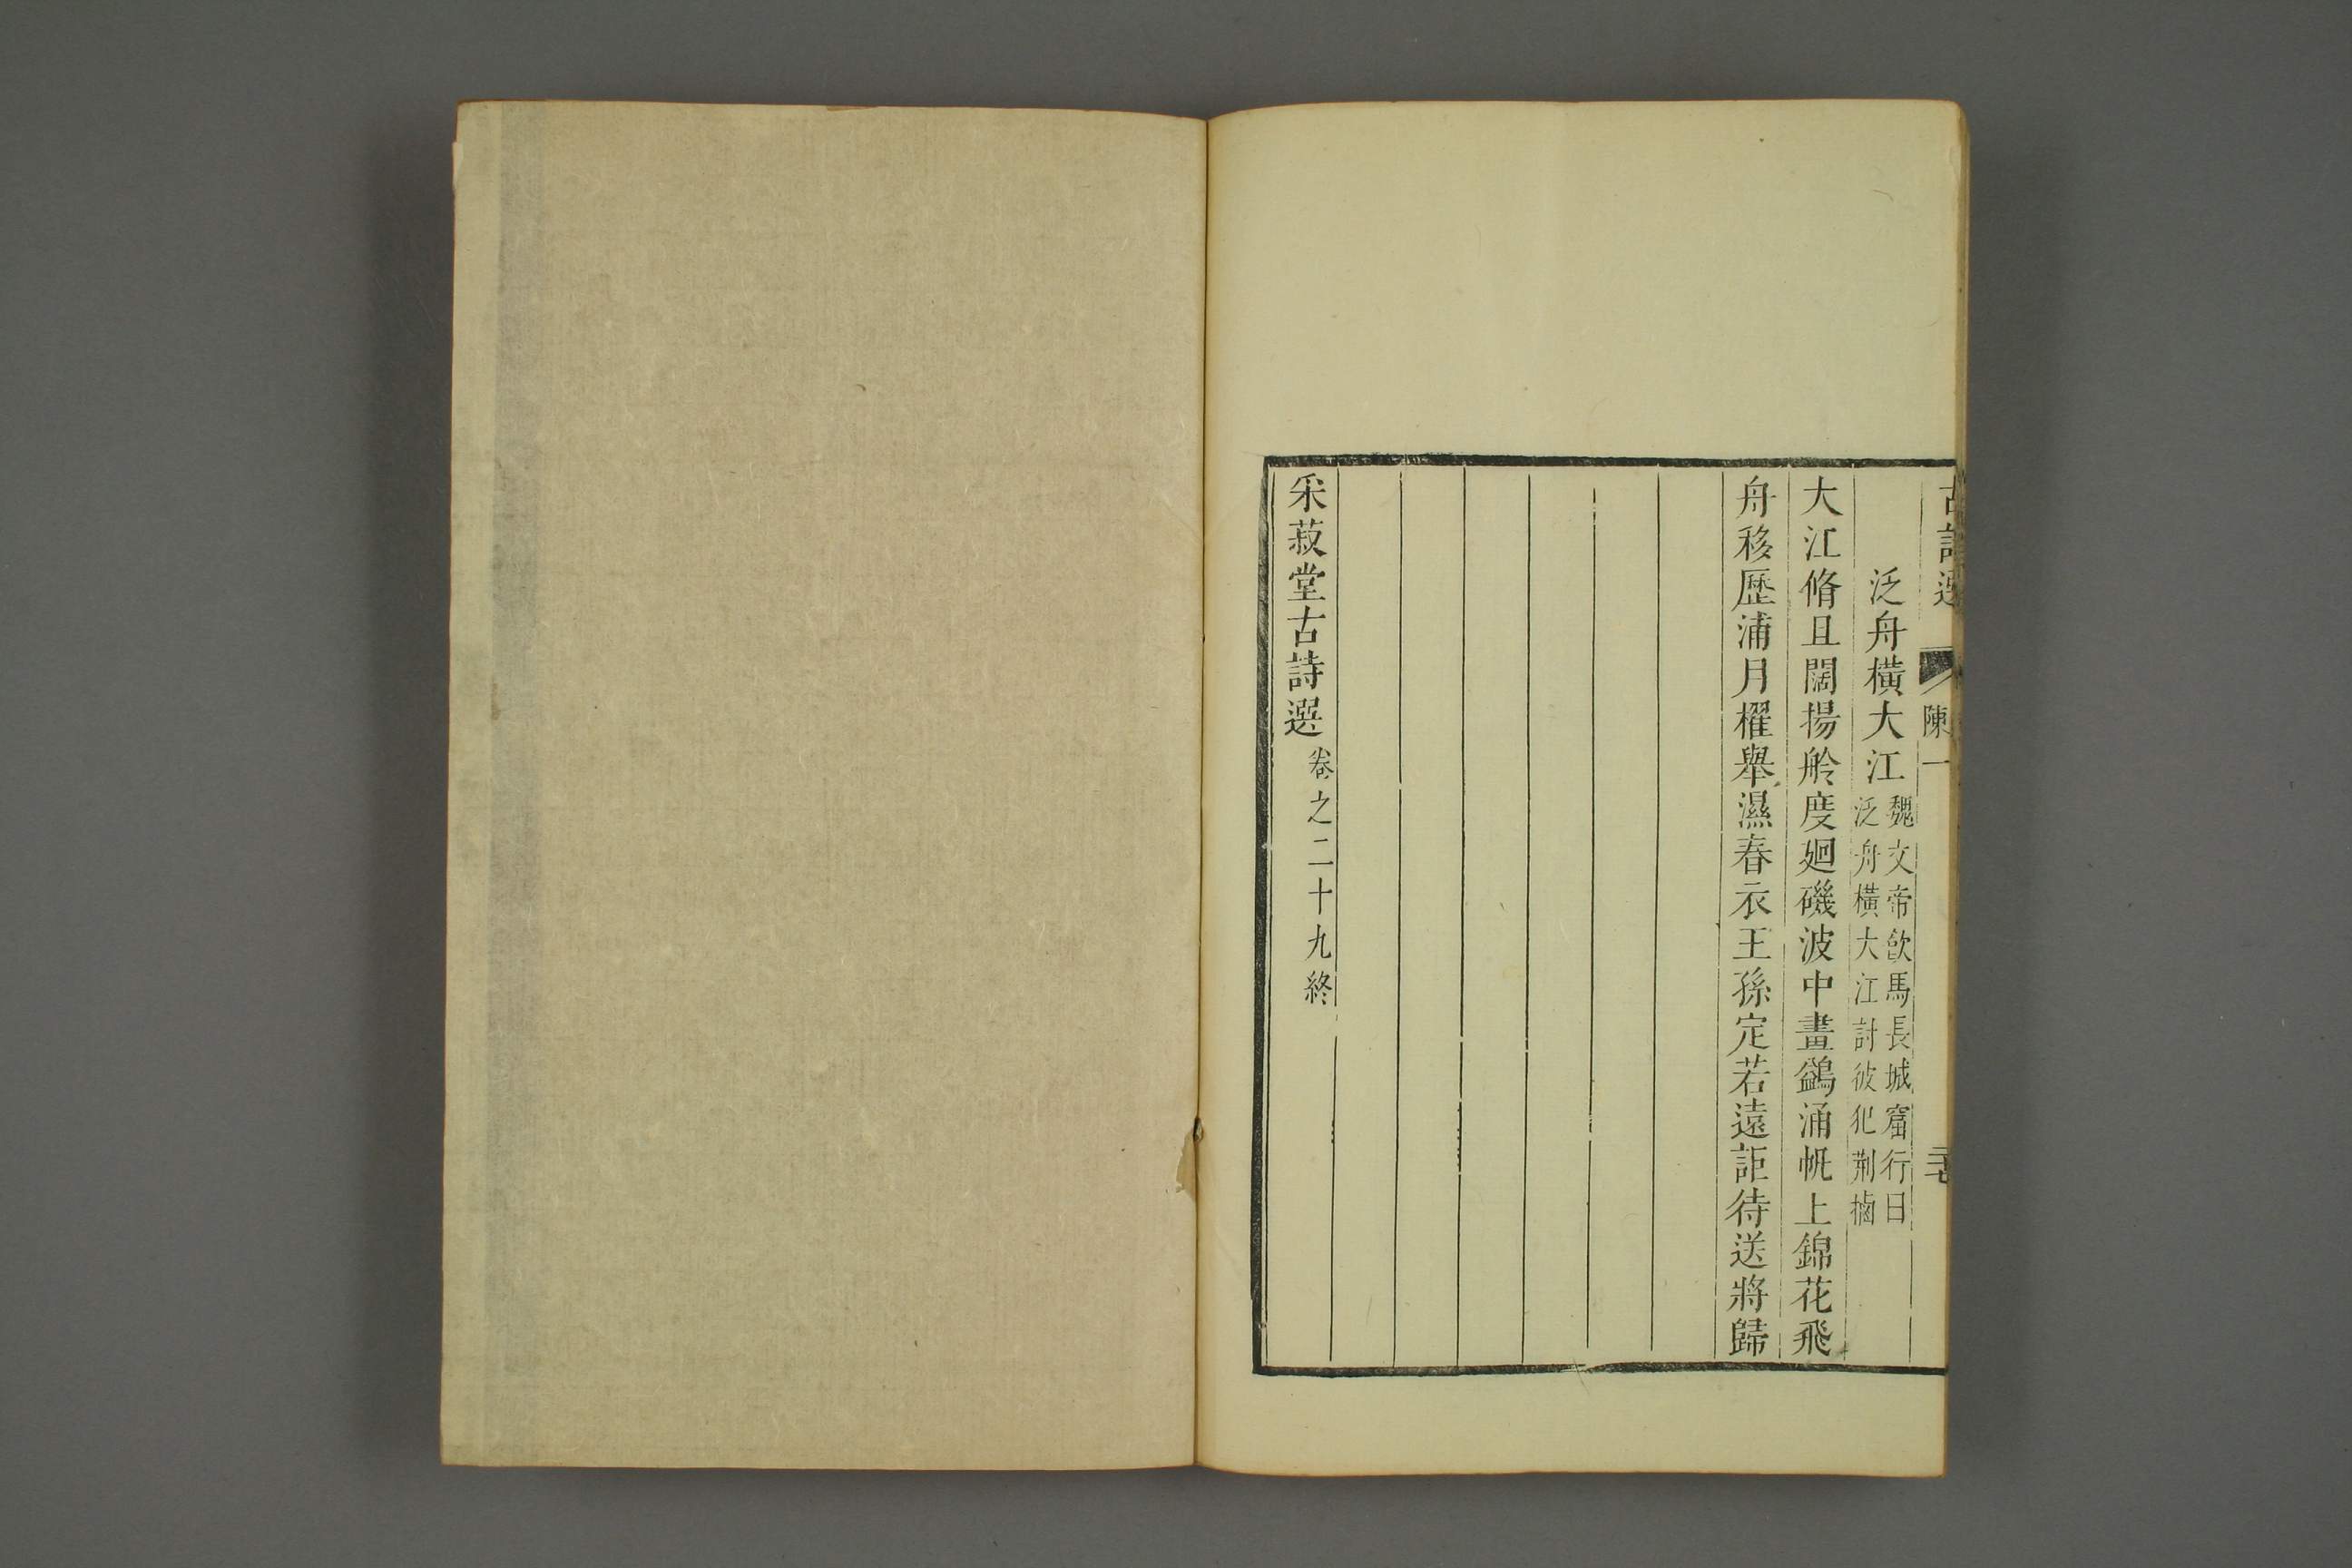 古詩選 陳一 三十七
泛舟橫大江 魏文帝飲馬長城窟行曰
泛舟橫大江討彼犯荆擄
大江脩且闊揚舲度廻磯波中畫鷁涌帆上錦花飛
舟移歷浦月櫂舉濕春衣王孫定若遠詎待送將歸
采菽堂古詩選 卷之二十九終